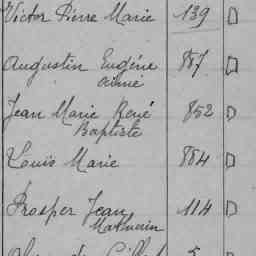 Victor Pierre Marie 139 D
Augustin Eugène 887 D
aimé
Jean Marie René 852 D
Baptiste
Louis Marie 884 D
Prosper Jean 114 D
Mathurin